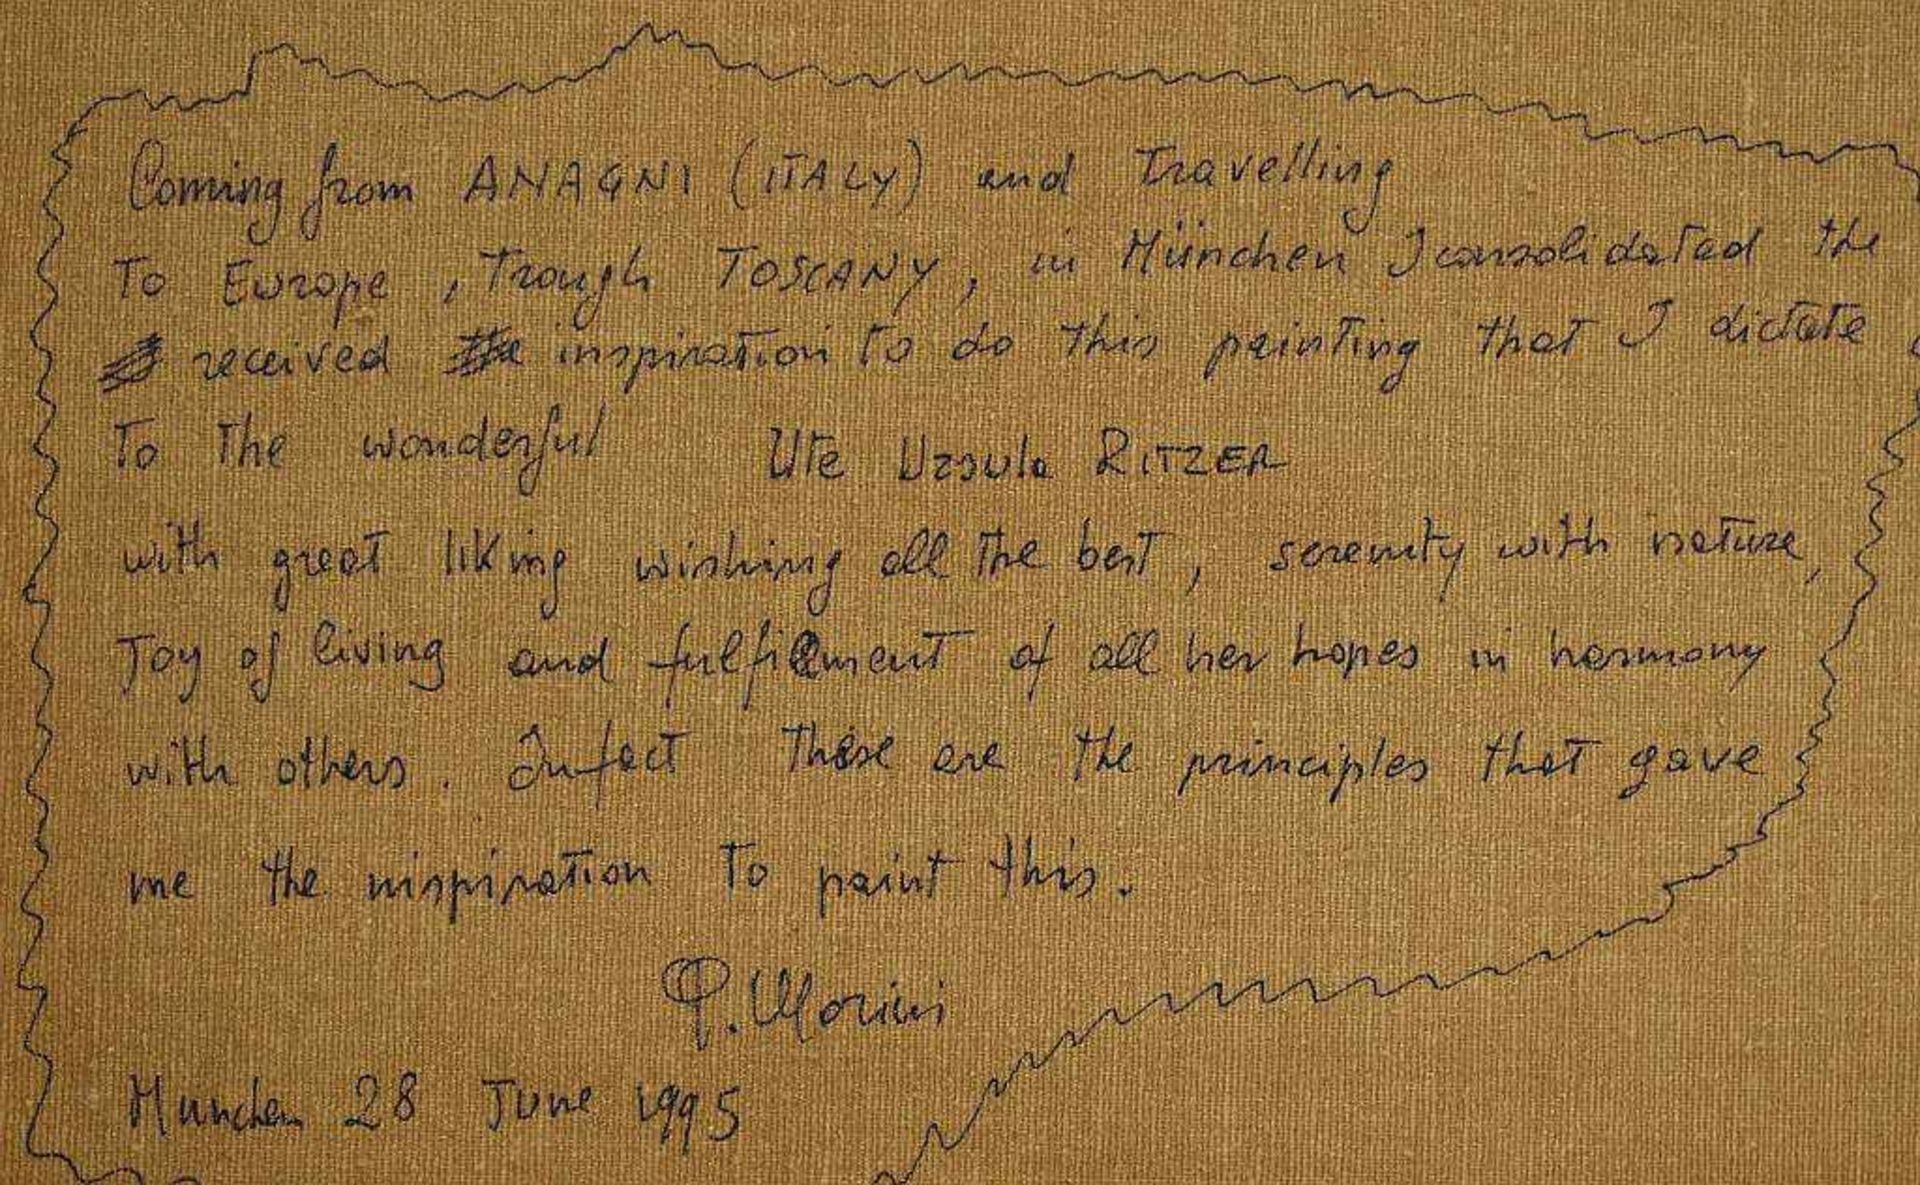 Coming from ANAGNI (ITALY) and Travelling
To Europe, Trough TOSCANY, in München I consolidated the
received inspiration to do this painting that I dictate
To The wonderful Ute Ursula RITZER
with great liking wishing all The best, serenity with nature,
Joy of living and fulfilment of all her hopes in harmony
with others. Infact these are the principles that gave
me the inspiration To paint this.
P. Morini
Munchen 28 June 1995